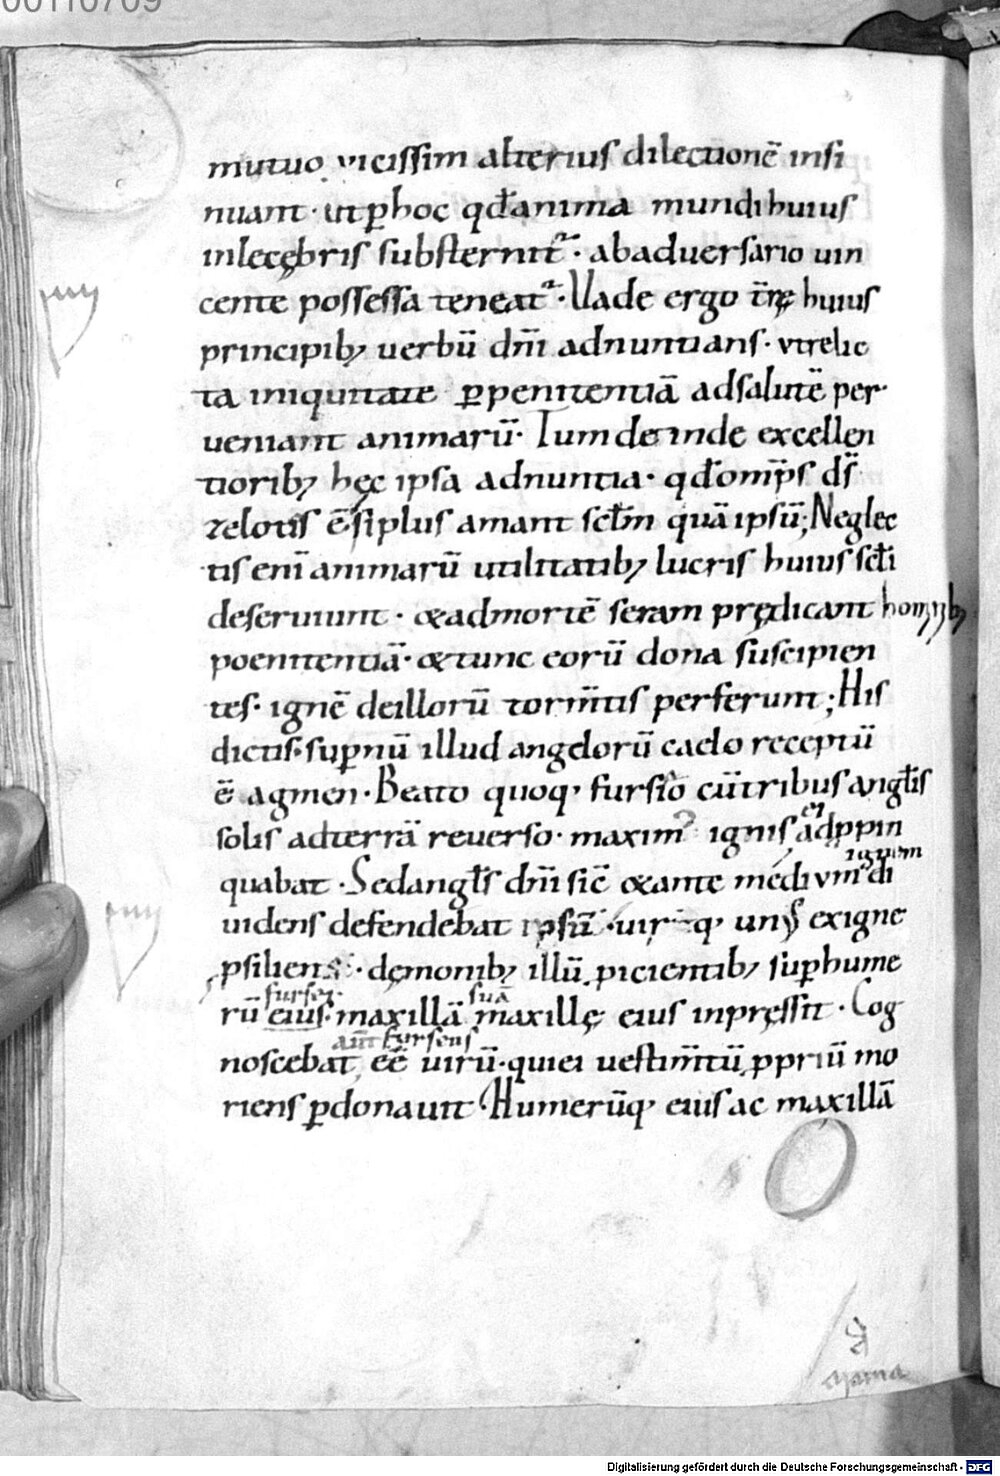 00110709
mutuo vicissim alterius dilectionē insi
nuant · ut ꝑ hoc qđ anima mundi huius
inlecębris substernit᷑ · ab adversario uin
cente possessa teneat᷑ · Uade ergo t̄rę huius
principibꝫ uerbū dn̄i adnuntians · vt relic
ta iniquitate ꝑ penitentiā ad salutē per
ueniant animarū · Tum deinde excellen
tioribꝫ hęc ipsa adnuntia · qđ om̄ps ds̄
zelotis ē · si plus amant scl̄m quā ipsū; Neglec
tis eni animarū utilitatibꝫ lucris huius scł̄i
deseruiunt · & ad mortē seram prędicant homībꝫ
poenitentiā · & tunc eorū dona suscipien
tes · ignē de illorū torm̄tis perferunt; His
dictis · suꝑnū illud angelorū caelo receptū
ē agmen · Beato quoq; furseo cū tribus angl̄is
solis ad terrā reverso · maxim᷒ ignis ei adꝓpin
quabat · Sed angl̄s dn̄i sic̄ & ante mediū ignem
vm̄ diuidens defendebat ipsū · uirūq; unꝰ ex igne
ꝓsiliens · dęmonibꝫ illū ꝓicientibꝫ suꝑ hume
fursei suā
rū eius · maxillā maxillę eius inpręssit · Cog
aut̄ furseus
noscebat eē virū · qui ei vestim̄tū ꝓpriū mo
riens ꝑdonavit · Humerūq; eius ac maxillā
Digitalisierung gefördert durch die Deutsche Forschungsgemeinschaft - DFG